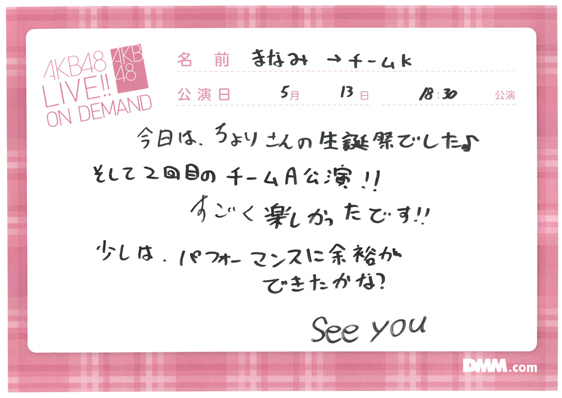 AKB48
LIVE!!
ON DEMAND
AKB
48
名 前 まなみ →チームK
公演日 5月 13日 18:30 公演
今日は、ちよりさんの生誕祭でした♪
そして2回目のチームA公演!!
すごく楽しかったです!!
少しは、パフォーマンスに余裕が
できたかな?
See you
DMM.com